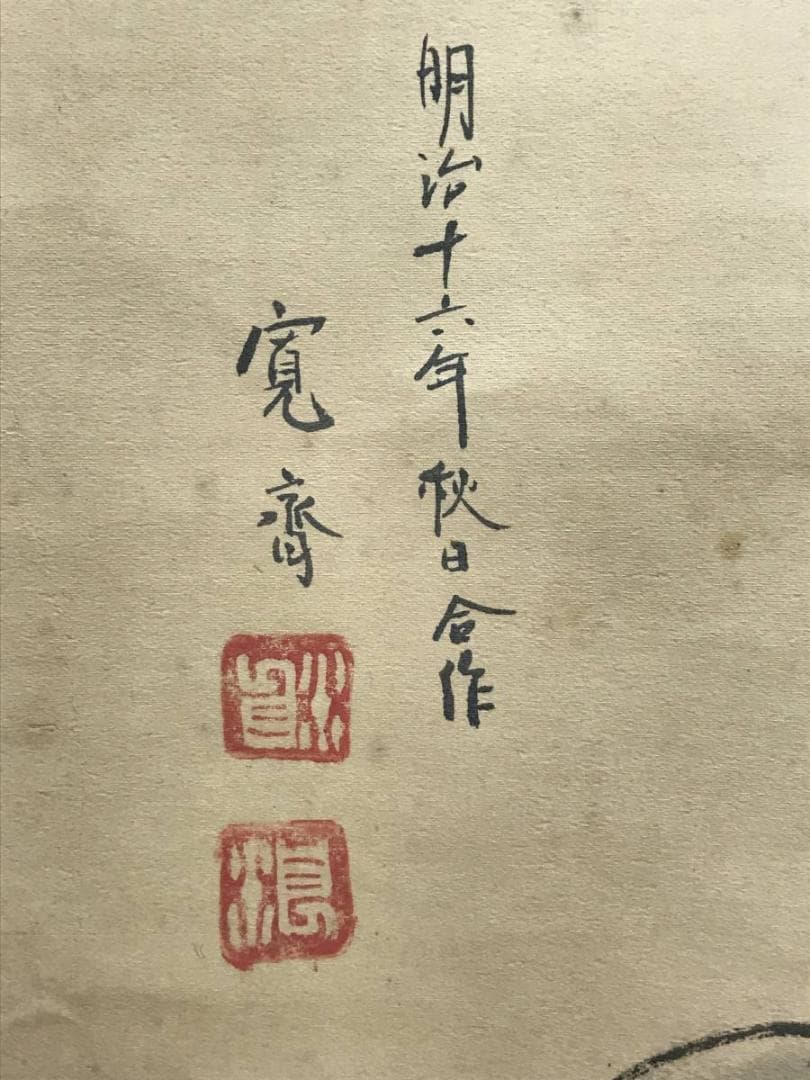 明治十六年秋日合作
寛齋